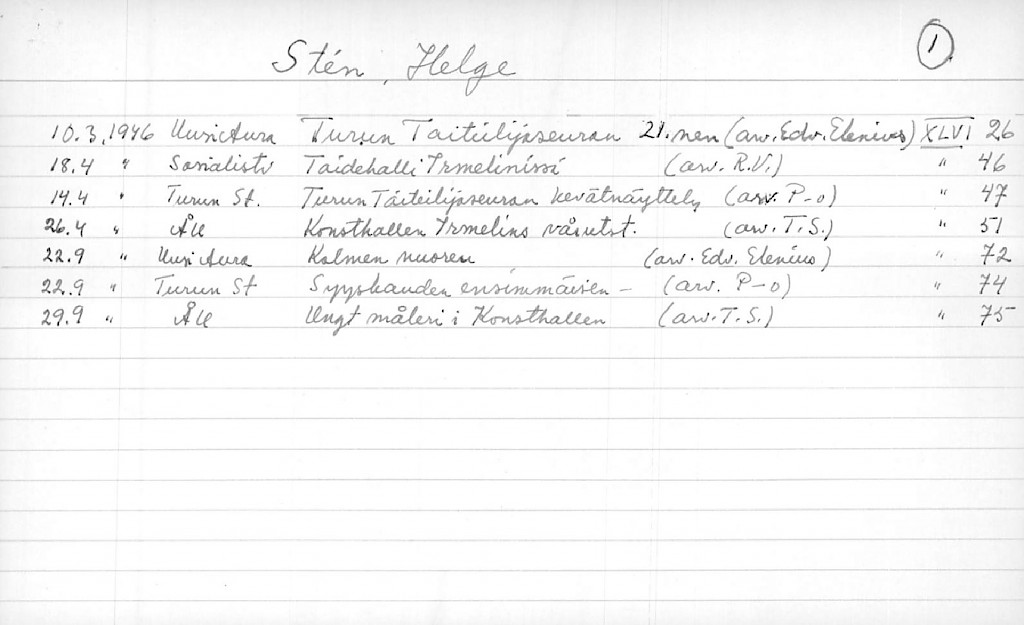 Stén, Helge 1
10.3.1946 Uusi Aura Turun Taiteilijaseuran 21.nen (arv. Edv. Elenius) XLVI 26
18.4 " Sosialisti Taidehalli Irmelinissä (arv. R.V.) " 46
14.4 " Turun St. Turun Taiteilijaseuran kevätnäyttely (arv. P-o) " 47
26.4 " ÅU Konsthallen Irmelins vårutst. (arv. T.S.) " 51
22.9 " Uusi Aura Kolmen nuoren (arv. Edv. Elenius) " 72
22.9 " Turun St Syyskauden ensimmäinen - (arv. P-o) " 74
29.9 " ÅU Ungt måleri i Konsthallen (arv. T.S.) " 75